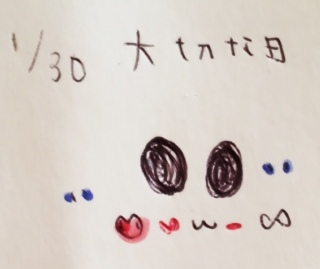 1/30 大切な日